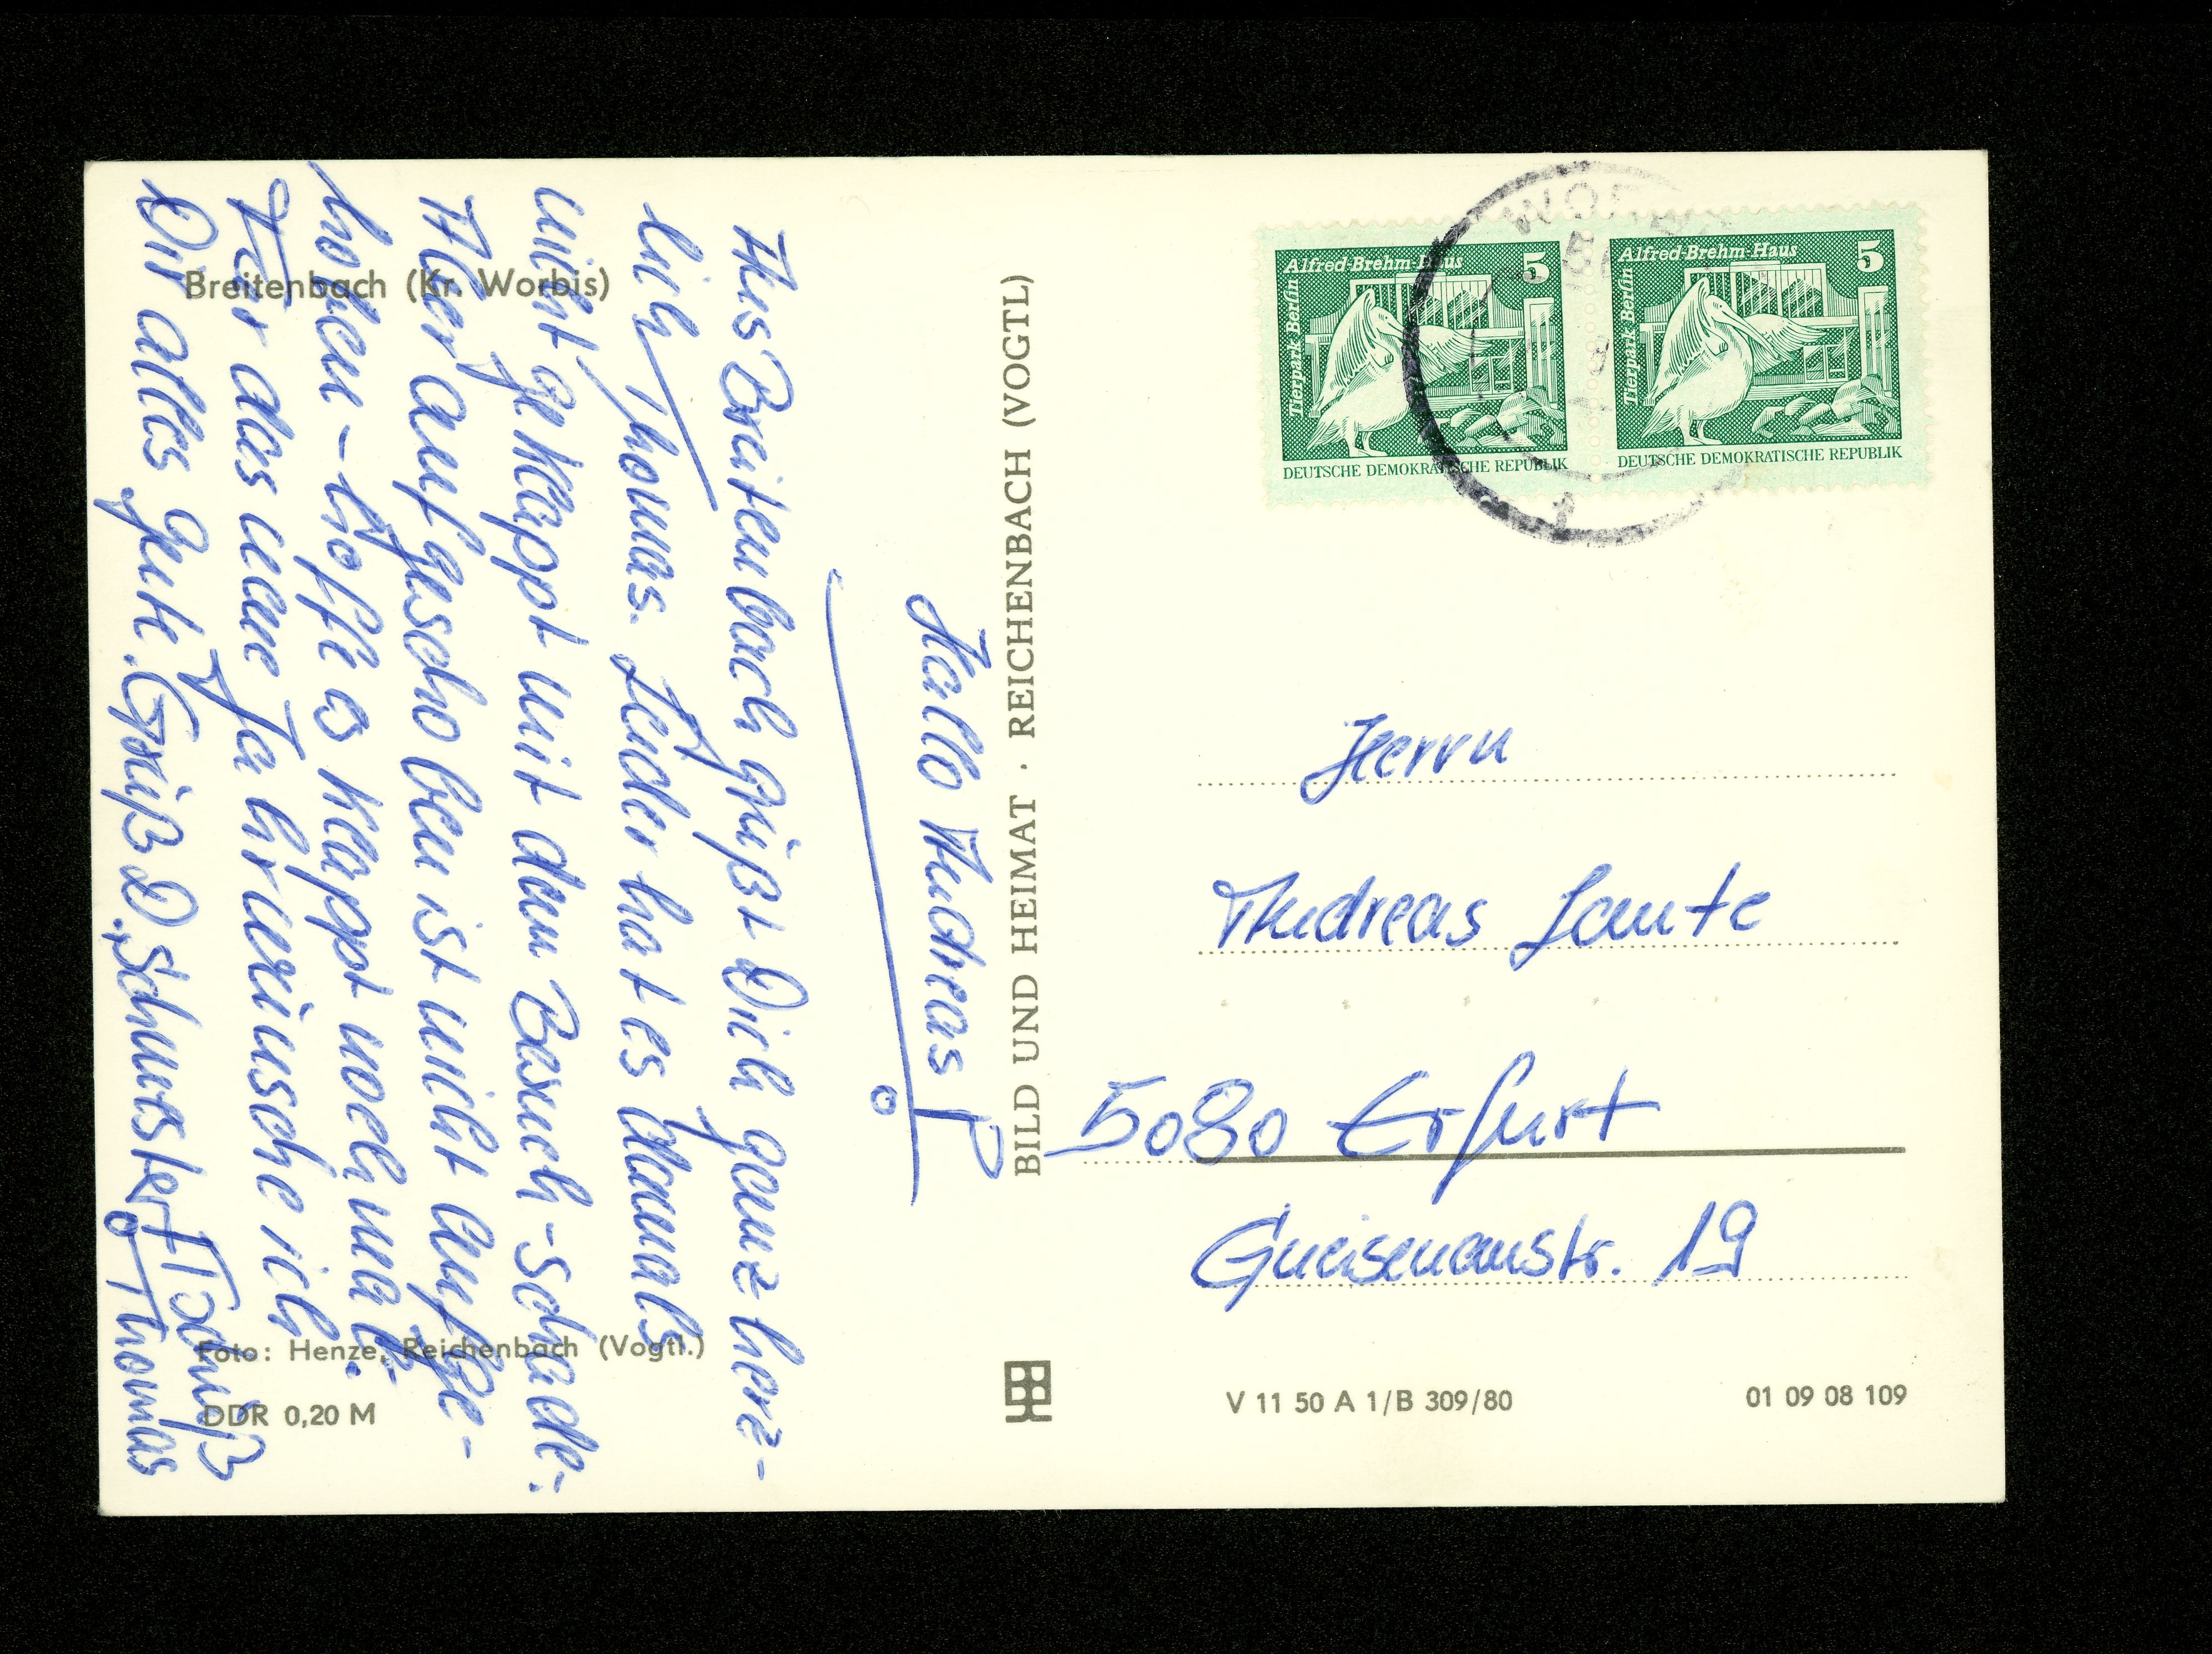 Breitenbach (Kr. Worbis)
Hallo Andreas!
Aus Breitenbach grüßt Dich ganz herz-
lich Thomas. Leider hat es damals
nicht geklappt mit dem Besuch - schade.
Aber aufgeschoben ist nicht aufge-
hoben - hoffe es klappt noch mal.
Für das neue Jahr wünsche ich
Dir alles gute. Grüß D. Schwester! Gruß
Thomas
Foto: Henze, Reichenbach (Vogtl.)
DDR 0,20 M
BILD UND HEIMAT · REICHENBACH (VOGTL)
Tierpark Berlin
Alfred-Brehm-Haus
5
DEUTSCHE DEMOKRATISCHE REPUBLIK
Tierpark Berlin
Alfred-Brehm-Haus
5
DEUTSCHE DEMOKRATISCHE REPUBLIK
Herrn
Andreas
5080 Erfurt
Gneisenaustr. 19
V 11 50 A 1/B 309/80
01 09 08 109